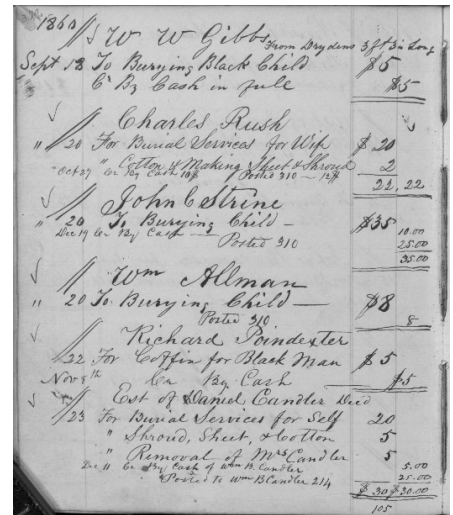 1860
W W Gibbs From Drydens 3 ft 3 in Long
Sept 18 To Burying Black Child $5
Cr By Cash in full $5
Charles Rush
" 20 For Burial Services for Wife $20
" Cotton & Making Sheet & Shroud 2
Oct 27 Cr By Cash 10$ Posted 310 — 12$ 22,22
John C Strine
" 20 To Burying Child — $35
Dec 19 Cr By Cash — 10.00
Posted 310 25.00
35.00
Wm Allman
" 20 To Burying Child — $8
Posted 310 8
Richard Poindexter
22 For Coffin for Black Man $5
Nov 8th Cr By Cash $5
Est of Daniel Candler Decd
23 For Burial Services for Self 20
" Shroud, Sheet, & Cotton 5
" Removal of Mrs Candler 5
Dec 11 Cr By Cash of Wm B. Candler 5.00
Posted to Wm B Candler 214 25.00
$30 $30.00
105